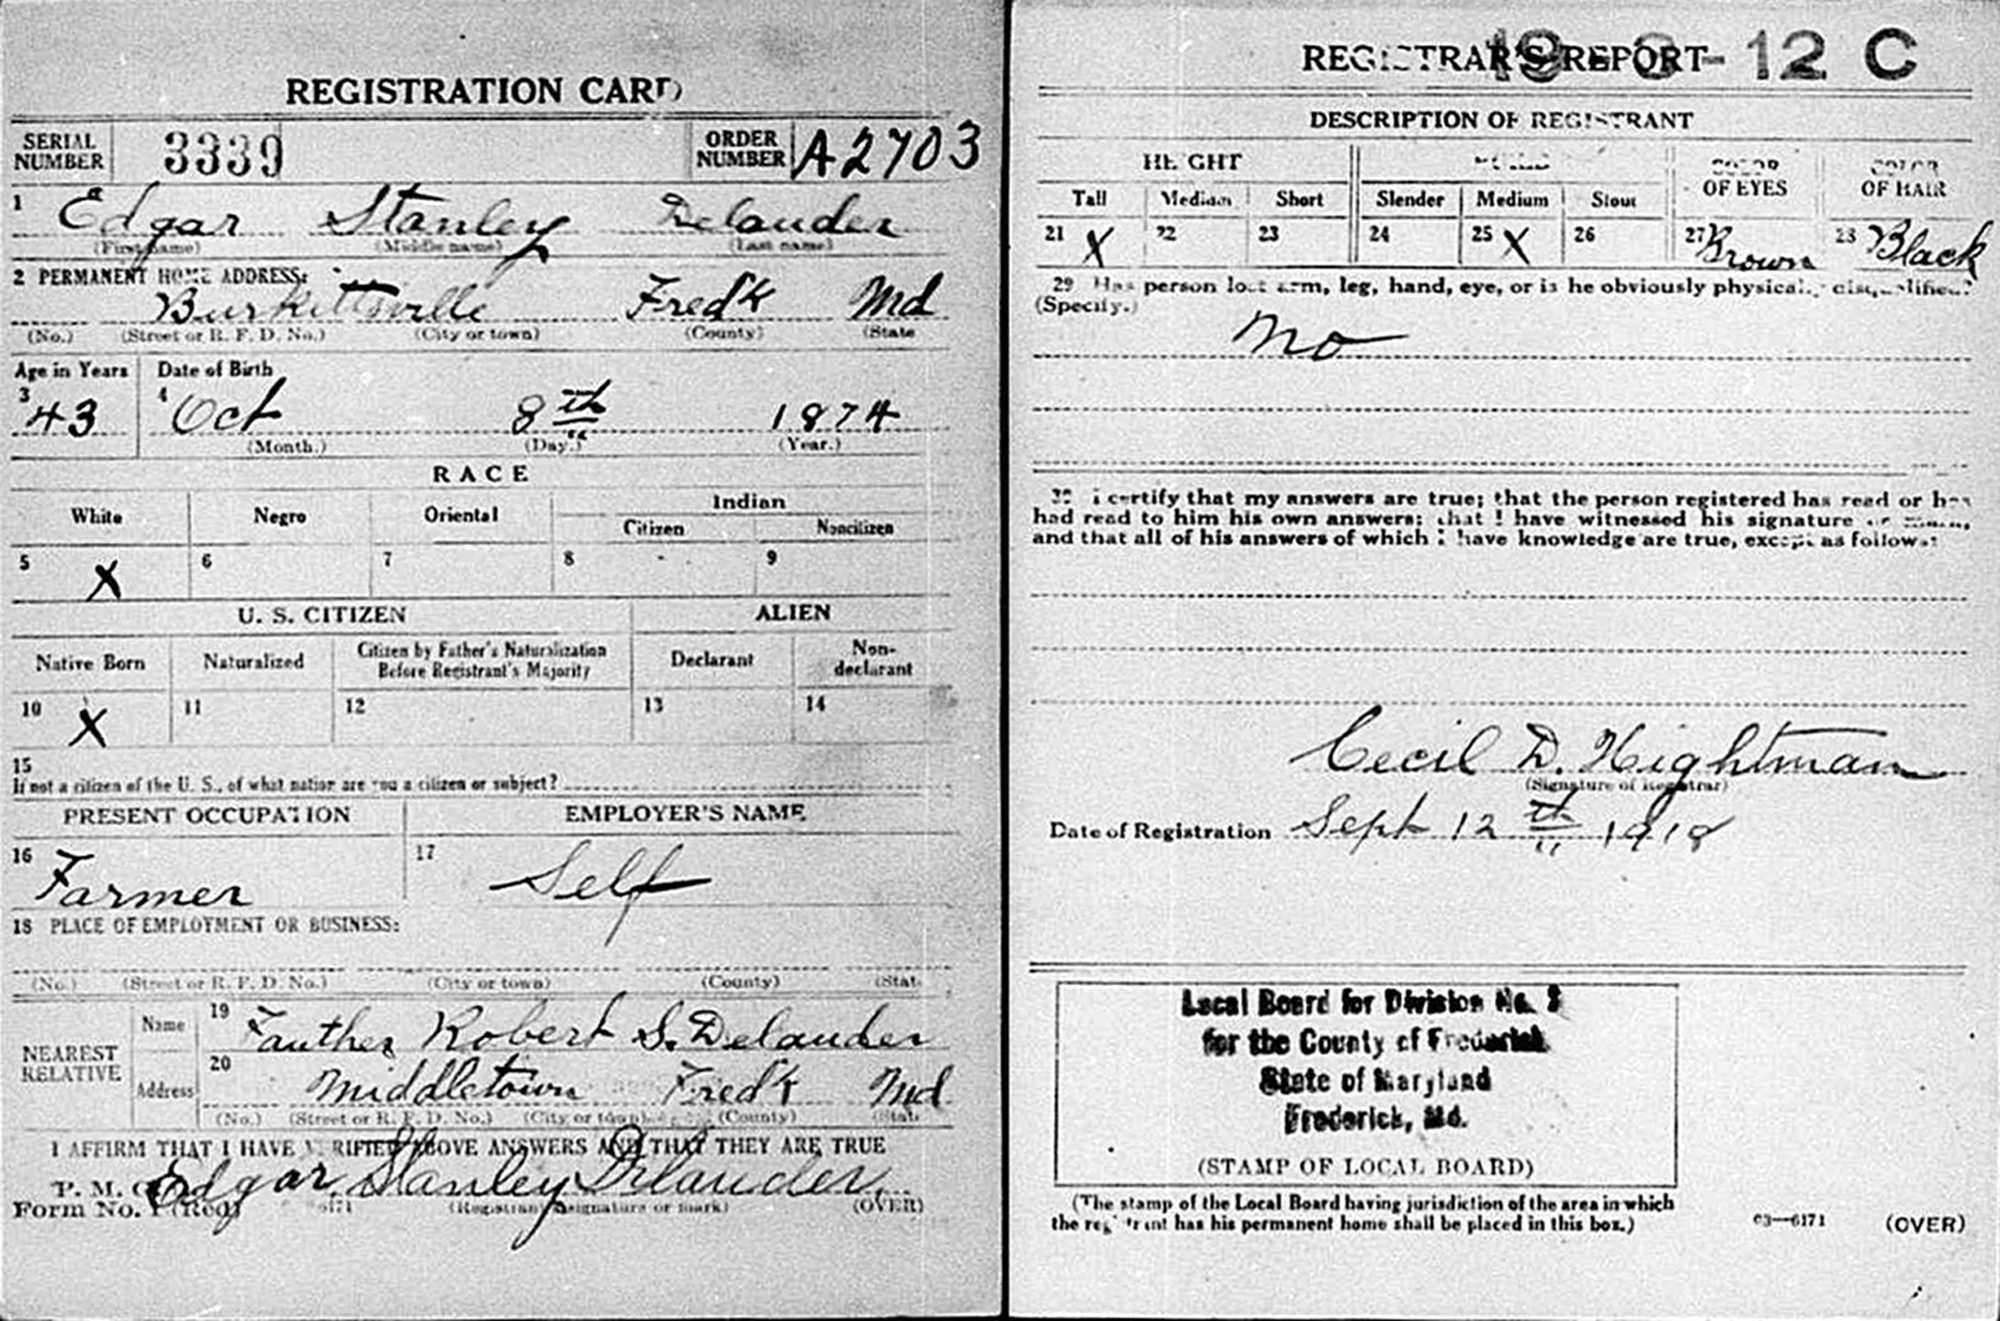 REGISTRATION CARD
SERIAL NUMBER 3339 ORDER NUMBER A2703
1 Edgar Stanley Delauder
(First name) (Middle name) (Last name)
2 PERMANENT HOME ADDRESS:
Burkittsville Fredk Md
(No.) (Street or R. F. D. No.) (City or town) (County) (State
Age in Years Date of Birth
3 43 4 Oct 8th 1874
(Month.) (Day.) (Year.)
RACE
White Negro Oriental Indian
Citizen Noncitizen
5 X 6 7 8 9
U. S. CITIZEN ALIEN
Native Born Naturalized Citizen by Father's Naturalization Before Registrant's Majority Declarant Non-declarant
10 X 11 12 13 14
15
If not a citizen of the U. S., of what nation are you a citizen or subject?
PRESENT OCCUPATION EMPLOYER'S NAME
16 Farmer 17 Self
18 PLACE OF EMPLOYMENT OR BUSINESS:
(No.) (Street or R. F. D. No.) (City or town) (County) (Stat
NEAREST RELATIVE
Name 19 Fauther Robert S. Delauder
Address 20 Middletown Fredk Md
(No.) (Street or R. F. D. No.) (City or town) (County) (Stat
I AFFIRM THAT I HAVE VERIFIED ABOVE ANSWERS AND THAT THEY ARE TRUE
Edgar Stanley Delauder
P. M. G.
Form No. 1 (Red) 6171 (Registrant's signature or mark) (OVER)
REGISTRAR'S REPORT
12 C
DESCRIPTION OF REGISTRANT
HEIGHT COLOR OF EYES COLOR OF HAIR
Tall Medium Short Slender Medium Stout
21 X 22 23 24 25 X 26 27 Brown 28 Black
29 Has person lost arm, leg, hand, eye, or is he obviously physically disqualified?
(Specify.)
No
30 I certify that my answers are true; that the person registered has read or has
had read to him his own answers; that I have witnessed his signature or mark,
and that all of his answers of which I have knowledge are true, except as follows:
Cecil D. Hightman
(Signature of Registrar)
Date of Registration Sept 12th 1918
Local Board for Division No.
for the County of Frederick
State of Maryland
Frederick, Md.
(STAMP OF LOCAL BOARD)
(The stamp of the Local Board having jurisdiction of the area in which
the registrant has his permanent home shall be placed in this box.)
03—6171 (OVER)